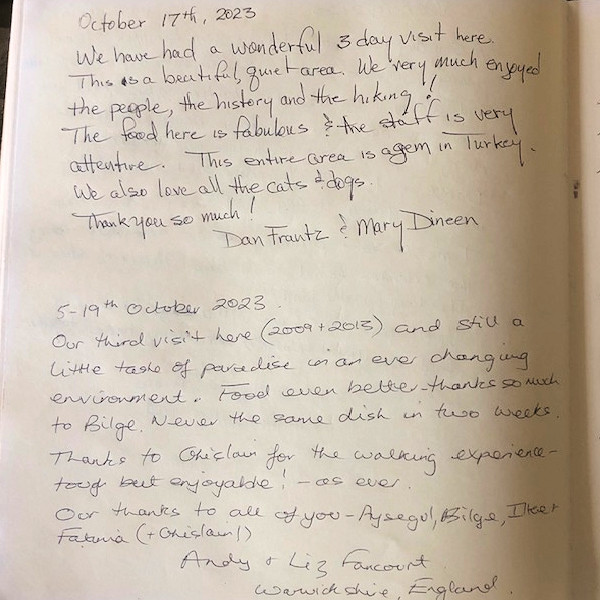 October 17th, 2023
We have had a wonderful 3 day visit here.
This is a beautiful, quiet area. We very much enjoyed
the people, the history and the hiking!
The food here is fabulous & the staff is very
attentive. This entire area is a gem in Turkey.
We also love all the cats & dogs.
Thank you so much!
Dan Frantz & Mary Dineen
5-19th October 2023.
Our third visit here (2009+2013) and still a
little taste of paradise in an ever changing
environment. Food even better - thanks so much
to Bilge. Never the same dish in two weeks.
Thanks to Ghislain for the walking experience -
tough but enjoyable! - as ever.
Our thanks to all of you - Aysegul, Bilge, Ilker
Fatma (+Ghislain!)
Andy & Liz Fancourt
Warwickshire, England.